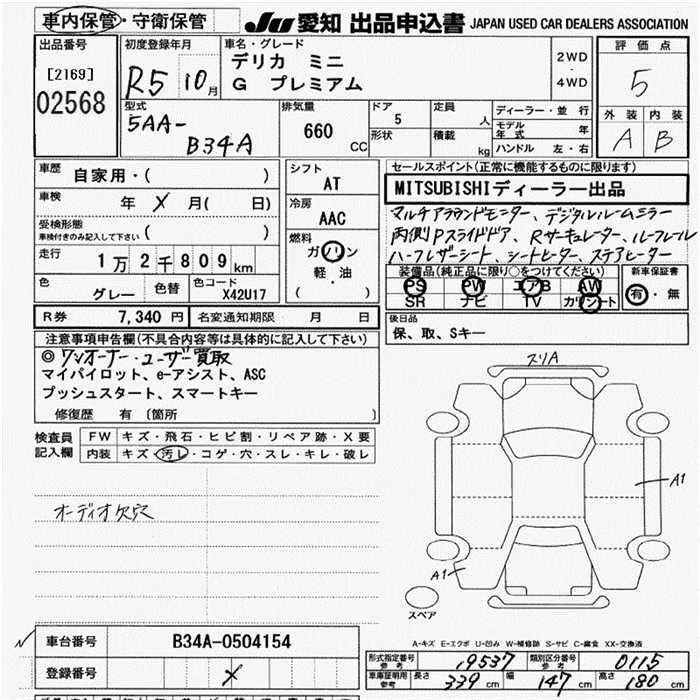 車内保管・守衛保管 JU 愛知 出品申込書 JAPAN USED CAR DEALERS ASSOCIATION
出品番号 初度登録年月 車名・グレード 評価点
[2169] R5 10月 デリカ ミニ 2WD
02568 G プレミアム ・ 4WD 5
型式 排気量 ドア 定員 ディーラー・並行 外装 内装
5AA- 660 CC 5 人 モデル年式 年 A B
B34A 形状 積載 kg ハンドル 左・右
車歴 自家用・( ) シフト AT セールスポイント(正常に機能するものに限ります)
車検 年 X 月( 日) 冷房 AAC MITSUBISHIディーラー出品
受検形態 ( )
車検付きのみ記入して下さい
マルチアラウンドモニター、デジタルルームミラー
両側Pスライドドア、Rサーキュレーター、ルーフレール
ハーフレザーシート、シートヒーター、ステアヒーター
走行 1万2千809km 燃料 ガソリン
軽・油
( )
色 グレー 色替 色コード X42U17
装備品(純正品に限り○をつけてください) 新車保証書
PS PW エアB AW 有・無
SR ナビ TV カワシート
R券 7,340円 名変通知期限 月 日
後日品
保、取、Sキー
注意事項申告欄(不具合内容等は具体的に記入して下さい)
◎ワンオーナー・ユーザー買取
マイパイロット、e-アシスト、ASC
プッシュスタート、スマートキー
修復歴 有 〔箇所 〕
検査員 FW キズ・飛石・ヒビ割・リペア跡・X要
記入欄 内装 キズ・汚レ・コゲ・穴・スレ・キレ・破レ
オーディオ欠穴
スリA
A1
A1
スペア
A-キズ E-エクボ U-凹み W-補修跡 S-サビ C-腐食 XX-交換済
車台番号 B34A-0504154
登録番号 X
形式指定番号 参考 19537 類別区分番号 参考 0115
車庫証明用 参考 長さ 339cm 幅 147cm 高さ 180cm